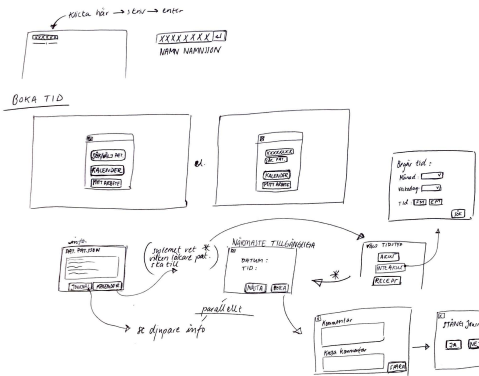 Klicka här → skriv → enter
XXXXXXX
XXXXXXXX ↵
NAMN NAMNSSON
BOKA TID
KALENDER
MITT ARBETE
el.
XXXXXXXX
KALENDER
MITT ARBETE
Begär tid:
Månad:
Veckodag:
Tid: FM EM
OK
info
PAT. PATSSON
JOURNAL
KALENDER
(systemet vet *
vilken läkare pat.
ska till)
NÄRMASTE TILLGÄNGLIGA
DATUM:
TID:
NÄSTA
BOKA
VÄLJ TIDSTYP
AKUT
INTE AKUT
RECEPT
*
parallellt
se djupare info
Kommentar
Kassa kommentar
SPARA
STÄNG
JA